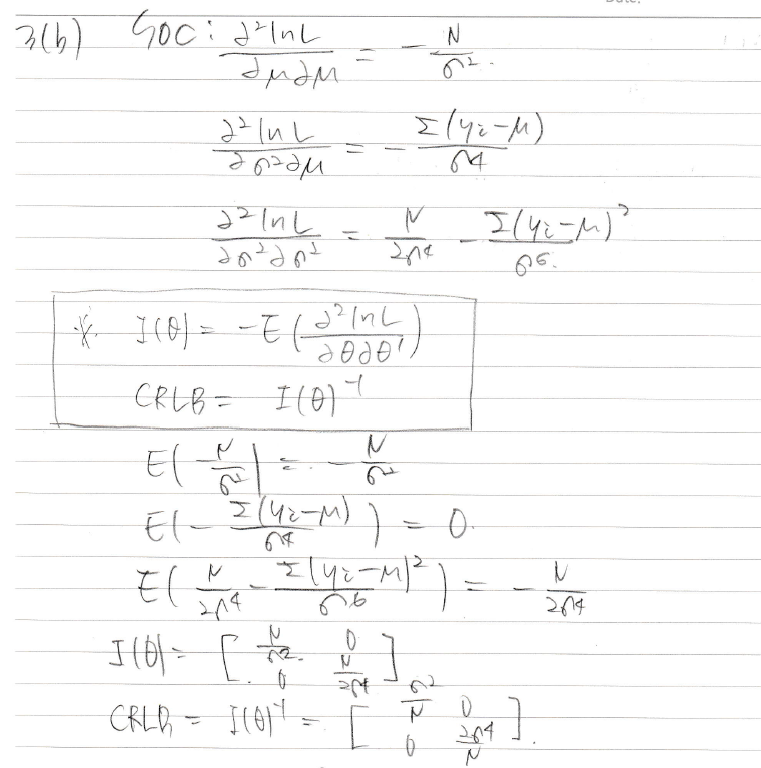 3(b) SOC: ∂²lnL/∂μ∂μ = -N/σ².
∂²lnL/∂σ²∂μ = -Σ(yi-μ)/σ4
∂²lnL/∂σ²∂σ² = N/2σ4 - Σ(yi-μ)²/σ6.
* I(θ) = -E(∂²lnL/∂θ∂θ')
CRLB = I(θ)⁻¹
E(-N/σ²) = -N/σ²
E(-Σ(yi-μ)/σ4) = 0.
E(N/2σ4 - Σ(yi-μ)²/σ6) = -N/2σ4
I(θ) = [N/σ². 0
0 N/2σ4]
CRLB = I(θ)⁻¹ = [σ²/N 0
0 2σ4/N].